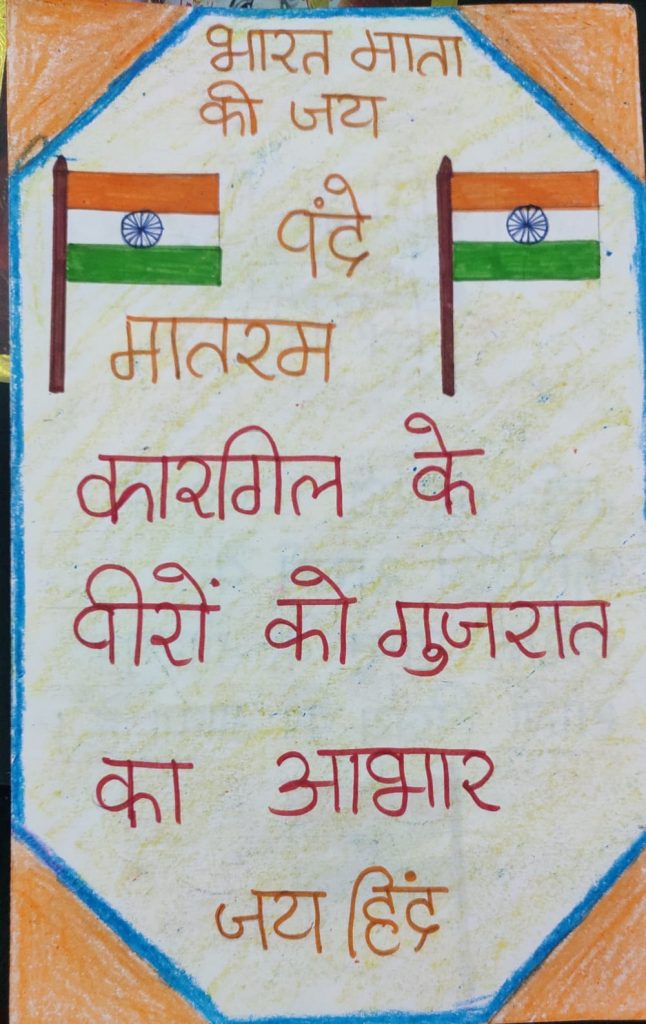 भारत माता
की जय
वंदे
मातरम
कारगिल के
वीरों को गुजरात
का आभार
जय हिंद